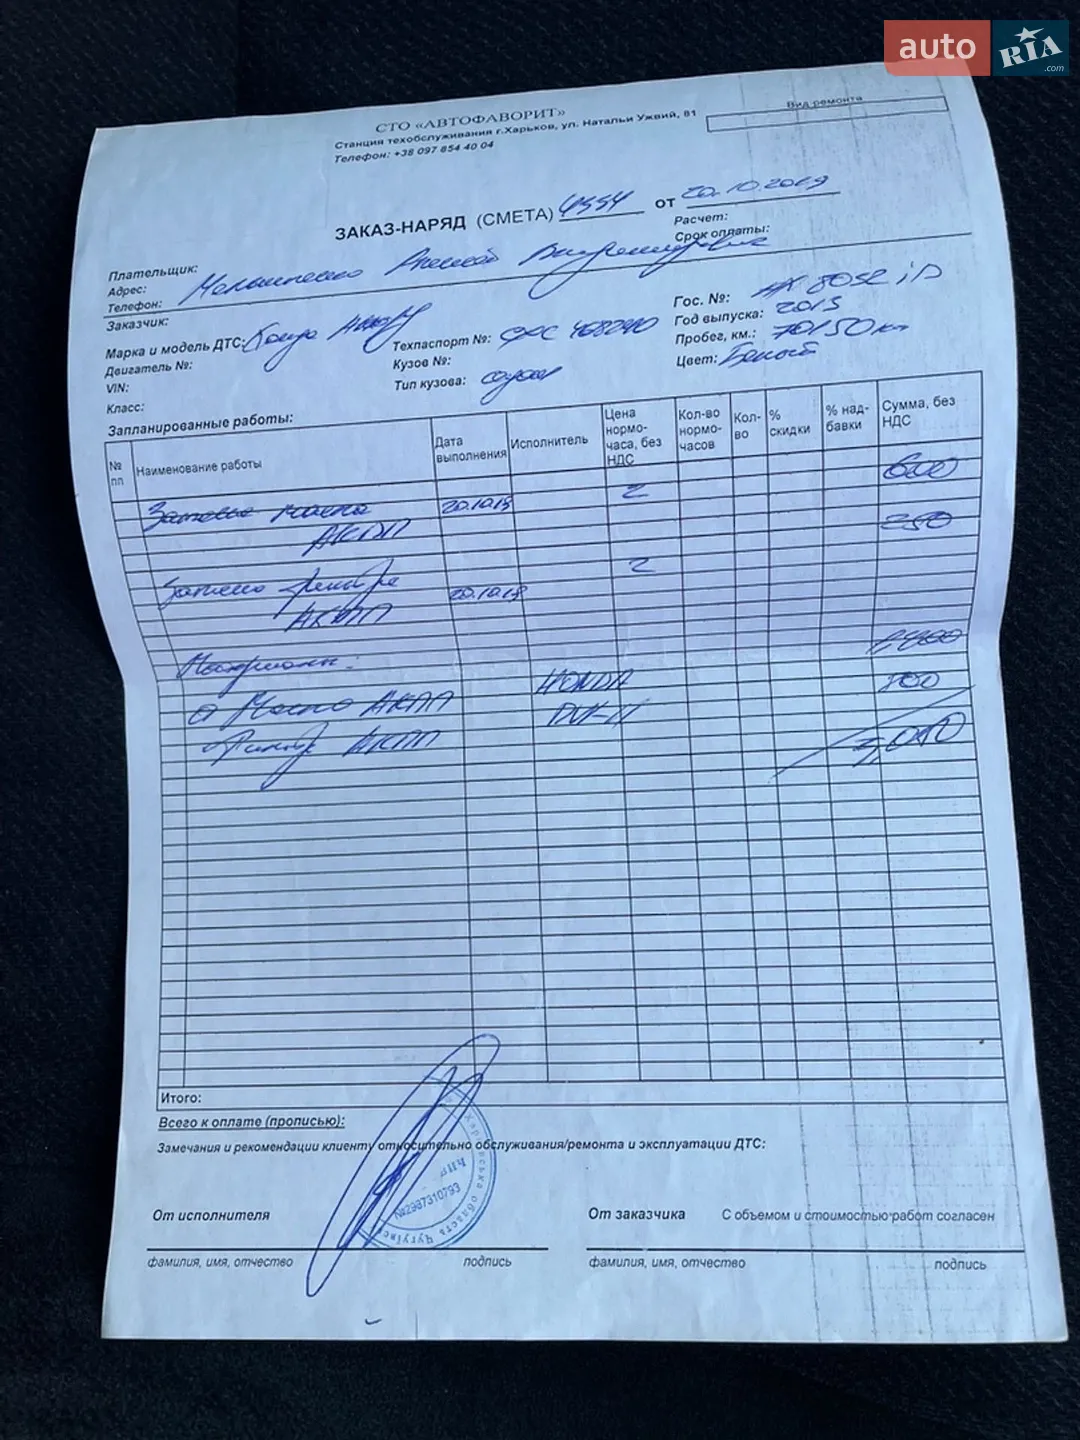 auto RIA .com
СТО «АВТОФАВОРИТ»
Станция техобслуживания г.Харьков, ул. Натальи Ужвий, 81
Телефон: +38 097 854 40 04
Вид ремонта
ЗАКАЗ-НАРЯД (СМЕТА) 4554 от 20.10.2019
Расчет:
Срок оплаты:
Плательщик:
Адрес:
Телефон:
Заказчик:
Марка и модель ДТС:
Двигатель №:
VIN:
Класс:
Техпаспорт №: СХС 468240
Кузов №:
Тип кузова: седан
Гос. №:
Год выпуска: 2013
Пробег, км.: 70150 км
Цвет: Белый
Запланированные работы:
№ пп
Наименование работы
Дата выполнения
Исполнитель
Цена нормо-часа, без НДС
Кол-во нормо-часов
Кол-во
% скидки
% над-бавки
Сумма, без НДС
Замена масла 20.10.19 2 600
АКПП
250
Замена фильтра 20.10.19 2
АКПП
Материалы:
Масло АКПП HONDA
Фильтр АКПП 700
3,050
Итого:
Всего к оплате (прописью):
Замечания и рекомендации клиенту относительно обслуживания/ремонта и эксплуатации ДТС:
№2987310793
От исполнителя
От заказчика С объемом и стоимостью работ согласен
фамилия, имя, отчество подпись
фамилия, имя, отчество подпись